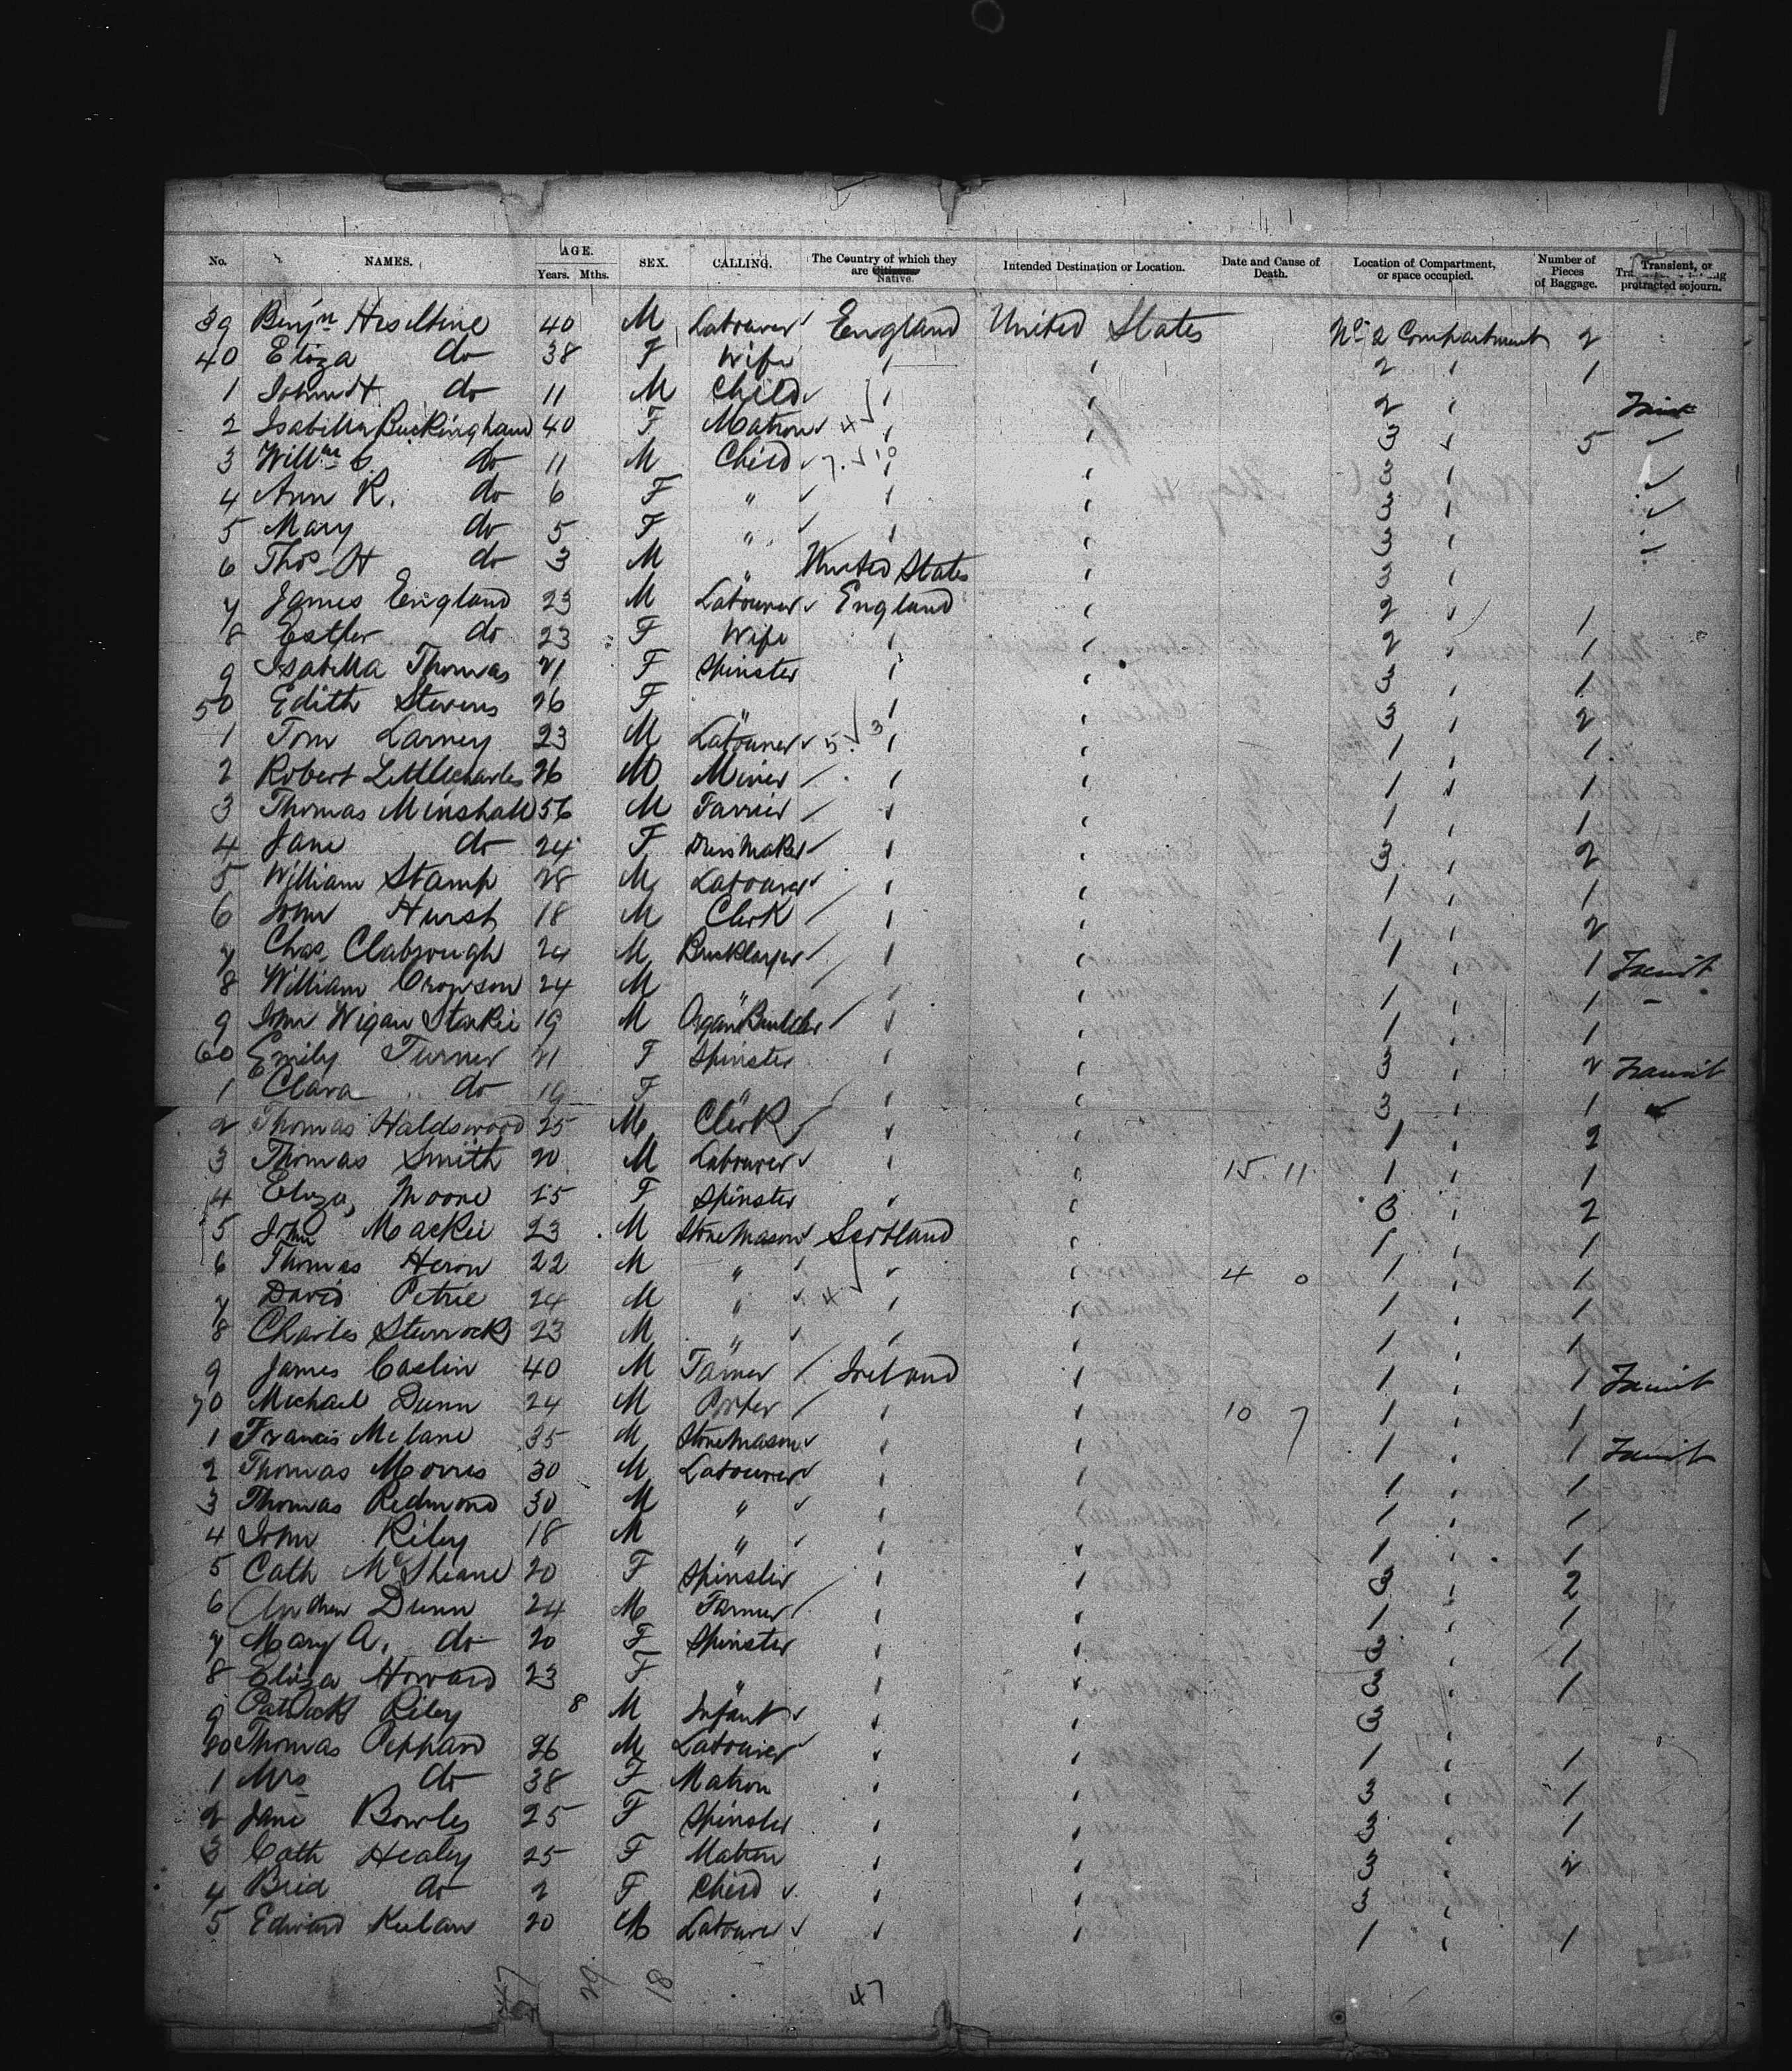 No. NAMES. AGE. Years. Mths. SEX. CALLING. The Country of which they are Citizens Native. Intended Destination or Location. Date and Cause of Death. Location of Compartment, or space occupied. Number of Pieces of Baggage. Transient, or protracted sojourn.
39 Benjn Hiseltine 40 M Labourer England United States No 2 Compartment 2
40 Eliza do 38 F Wife " " 2 " 1
1 John H do 11 M Child " " 2 "
2 Isabella Buckingham 40 F Matron " " 3 " 5
3 Willm do 11 M Child " " 3 "
4 Ann R. do 6 F " " " 3 "
5 Mary do 5 F " " " 3 "
6 Thos H do 3 M " United States " 3 "
7 James England 23 M Labourer England " 2 " 1
8 Esther do 23 F Wife " " 2 " 1
9 Isabella Thomas 21 F Spinster " " 3 " 1
50 Edith Stevens 26 F " " " 3 " 2
1 Tom Larney 23 M Labourer " " 1 " 1
2 Robert Littlecharles 26 M Miner " " 1 " 1
3 Thomas Minshall 56 M Farrier " " 1 " 1
4 Jane do 24 F Dress Maker " " 3 " 2
5 William Stamp 28 M Labourer " " 1 " 1
6 John Hurst 18 M Clerk " " 1 " 2
7 Chas Clabrough 24 M Bricklayer " " 1 " 1 Transit
8 William Crowson 24 M " " " 1 " 1 –
9 John Wigan Starkie 19 M Organ Builder " " 1 " 1
60 Emily Turner 21 F Spinster " " 3 " 2 Transit
1 Clara do 19 F " " " 3 " 1
2 Thomas Haldswood 25 M Clerk " " 1 " 2
3 Thomas Smith 20 M Labourer " " 15. 11 1 " 1
4 Eliza Moore 25 F Spinster " " 3 " 2
5 John Mackie 23 M Stone Mason Scotland " 1 " 1
6 Thomas Heron 22 M " " " 4 0 1 " 1
7 David Petrie 24 M " " " 1 " 1
8 Charles Sturrock 23 M " " " 1 " 1
9 James Caslin 40 M Farmer Ireland " 1 " 1 Transit
70 Michael Dunn 24 M Porter " " 10 7 1 " 1
1 Francis McLane 35 M Stone Mason " " 1 " 1 Transit
2 Thomas Morris 30 M Labourer " " 1 " 1
3 Thomas Redmond 30 M " " " 1 " 1
4 John Riley 18 M " " " 1 " 1
5 Cath McShane 20 F Spinster " " 3 " 2
6 Andrew Dunn 24 M Farmer " " 1 " 1
7 Mary A. do 20 F Spinster " " 3 " 1
8 Eliza Howard 23 F " " " 3 " 1
9 Patrick Riley 8 M Infant " " 3 "
80 Thomas Peppard 26 M Labourer " " 1 " 1
1 Mrs do 38 F Matron " " 3 " 1
2 Jane Bowles 25 F Spinster " " 3 " 1
3 Cath Healey 25 F Matron " " 3 " 2
4 Brid do 2 F Child " " 3 "
5 Edward Keelan 20 M Labourer " " 1 " 1
47 29 18 47